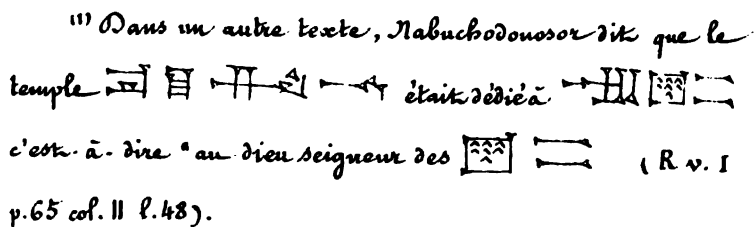 (1) Dans un autre texte, Nabuchodonosor dit que le
temple était dédié à
c'est-à-dire "au dieu seigneur des (R v. I
p.65 col. II l.48).